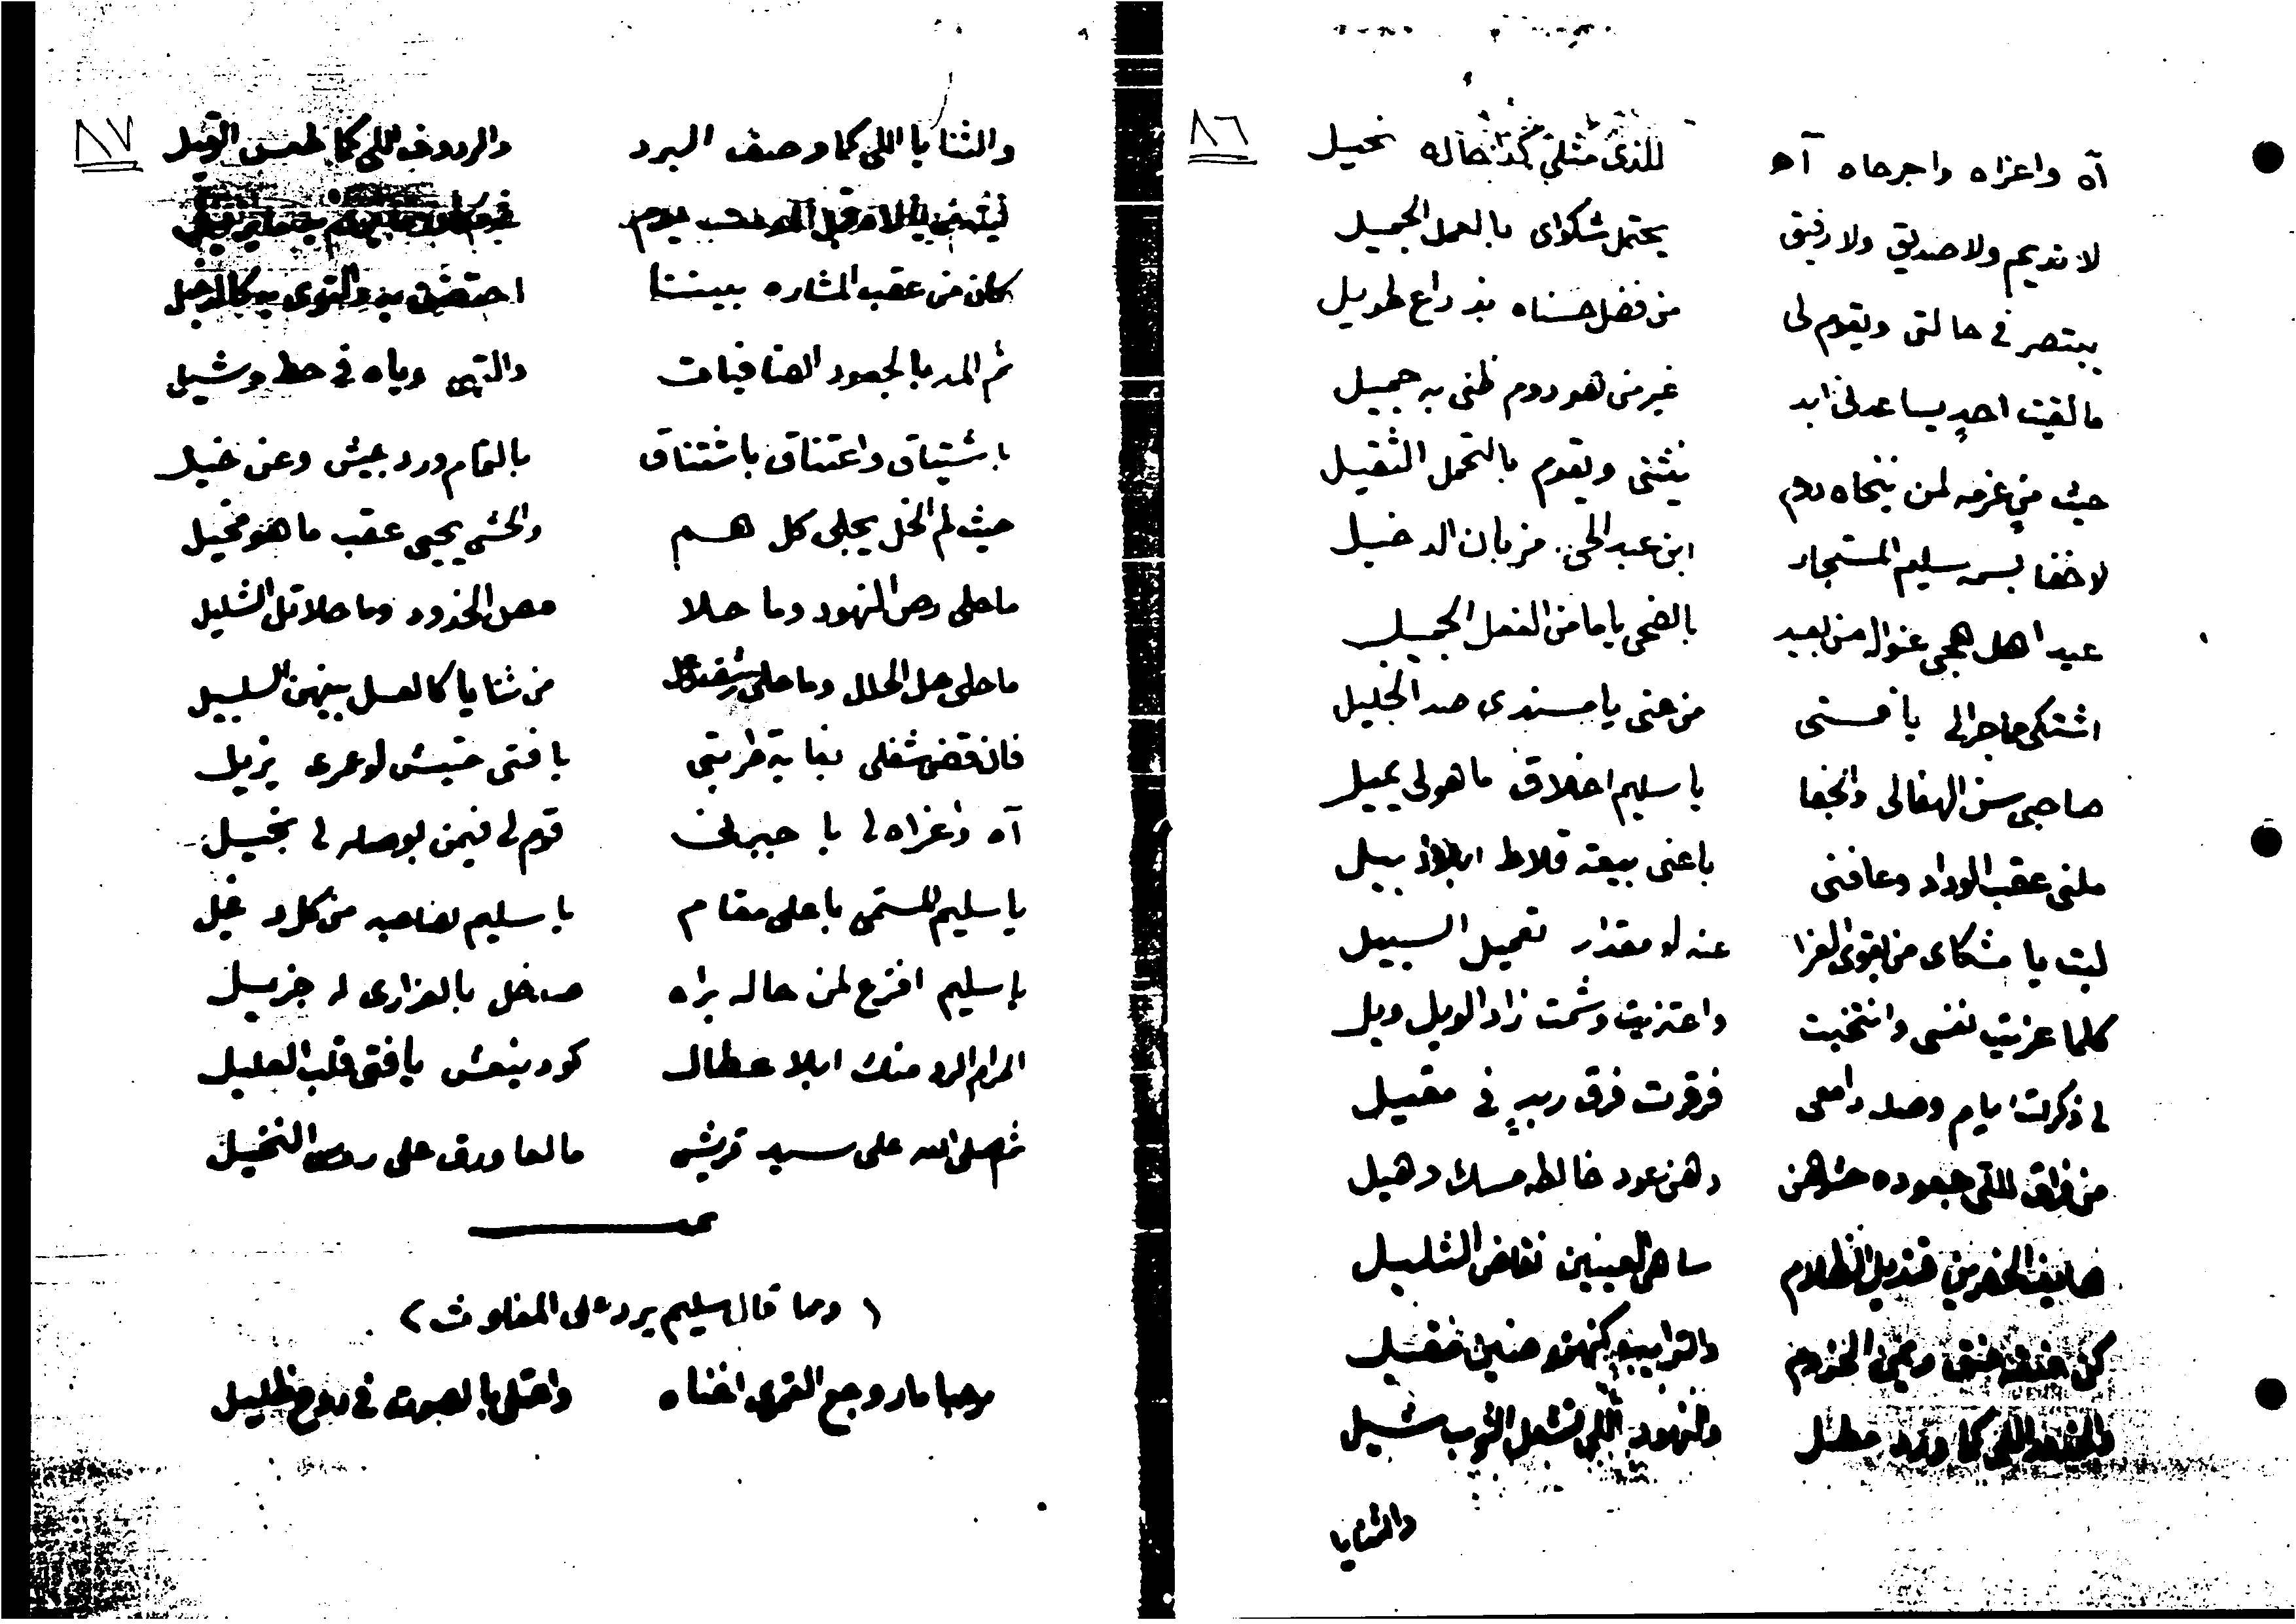 ٨٦
آه واعزاه واجرحاه آه للذي مثلي كمد حاله نحيل
لا نديم ولا صديق ولا رفيق يحتمل شكواي بالعمل الجميل
ببتصر في حالتي ويقوم لي من فضل حسناه بذراع طويل
ما لقيت احدٍ يساعدني ابد غير من هو دوم ظني به جميل
حيث من عزمه لمن ينخاه دوم ينثني ويقوم بالتحمل الثقيل
لا خفا بسمه سليم المستجار ابن عبد الحي مزبان الدخيل
عيد اهل هجن عنوا له من بعيد بالضحى ياما من الفعل الجميل
اشتكي ما جرا لي يا فتى من عنى يا مسندي صد الخليل
صاحبي سن الهفالي والجفا يا سليم اخلاق ما هو لي يميل
ملني عقب الوداد وعافني باعني بيعة قلاط ابلاذ بيل
ليت يا مشكاي من يقوى العزا عنه لو مقدار تعميل السبيل
كلما عزيت نفسي وانتخيت واعتزيت وشمت زاد الويل ويل
لي ذكرت ايام وصله دامعي فرقرت فرق ربدٍ في مقيل
من فراق اللي جعوده حشوهن دهن عود خالطه مسك وهيل
صايف الخدين قنديل الظلام ساهي العينين نقاض الثليل
والنهود اللي تشعل الثوب شيل
والثنايا
٨٧
والثنايا اللي كما وصف البرد والردوف اللي كما طعس
كان من عقب المشاره بيننا
ثم المد بالجعود الضافيات والتهي وياه في حط وشيل
باشتياق واعتناق باشتناق بالتمام ورد جيش وعن خيل
حيث لم الخل يجلي كل هم والحشى يحيى عقب ما هو محيل
ما حلى رص النهود وما حلا مص الخدود وما حلا تل الثليل
ما حلى حل الحلل وما حلى من ثنايا كالعسل بينهن السلسبيل
فان قضى شغلي بغاية طربتي يا فتى حتيش لو عمري يزيل
آه واعزاه لي يا جيرتي قوم لي فيمن بوصله لي بخيل
يا سليم المستمي باعلى مقام يا سليم لصاحبه من كل دغيل
يا سليم افزع لمن حاله براه صد خل بالعزاري له جزيل
المرام الرد منك ابلا عطال كود ينعش يا فتى قلب العليل
ثم صلى الله على سيد قريش ما لعا ورق على روس النخيل
( ومما قال سليم يرد على المغلوث )
مرحبا ما روجع القمري اغناه واعتلى بالصوت في دوح ظليل